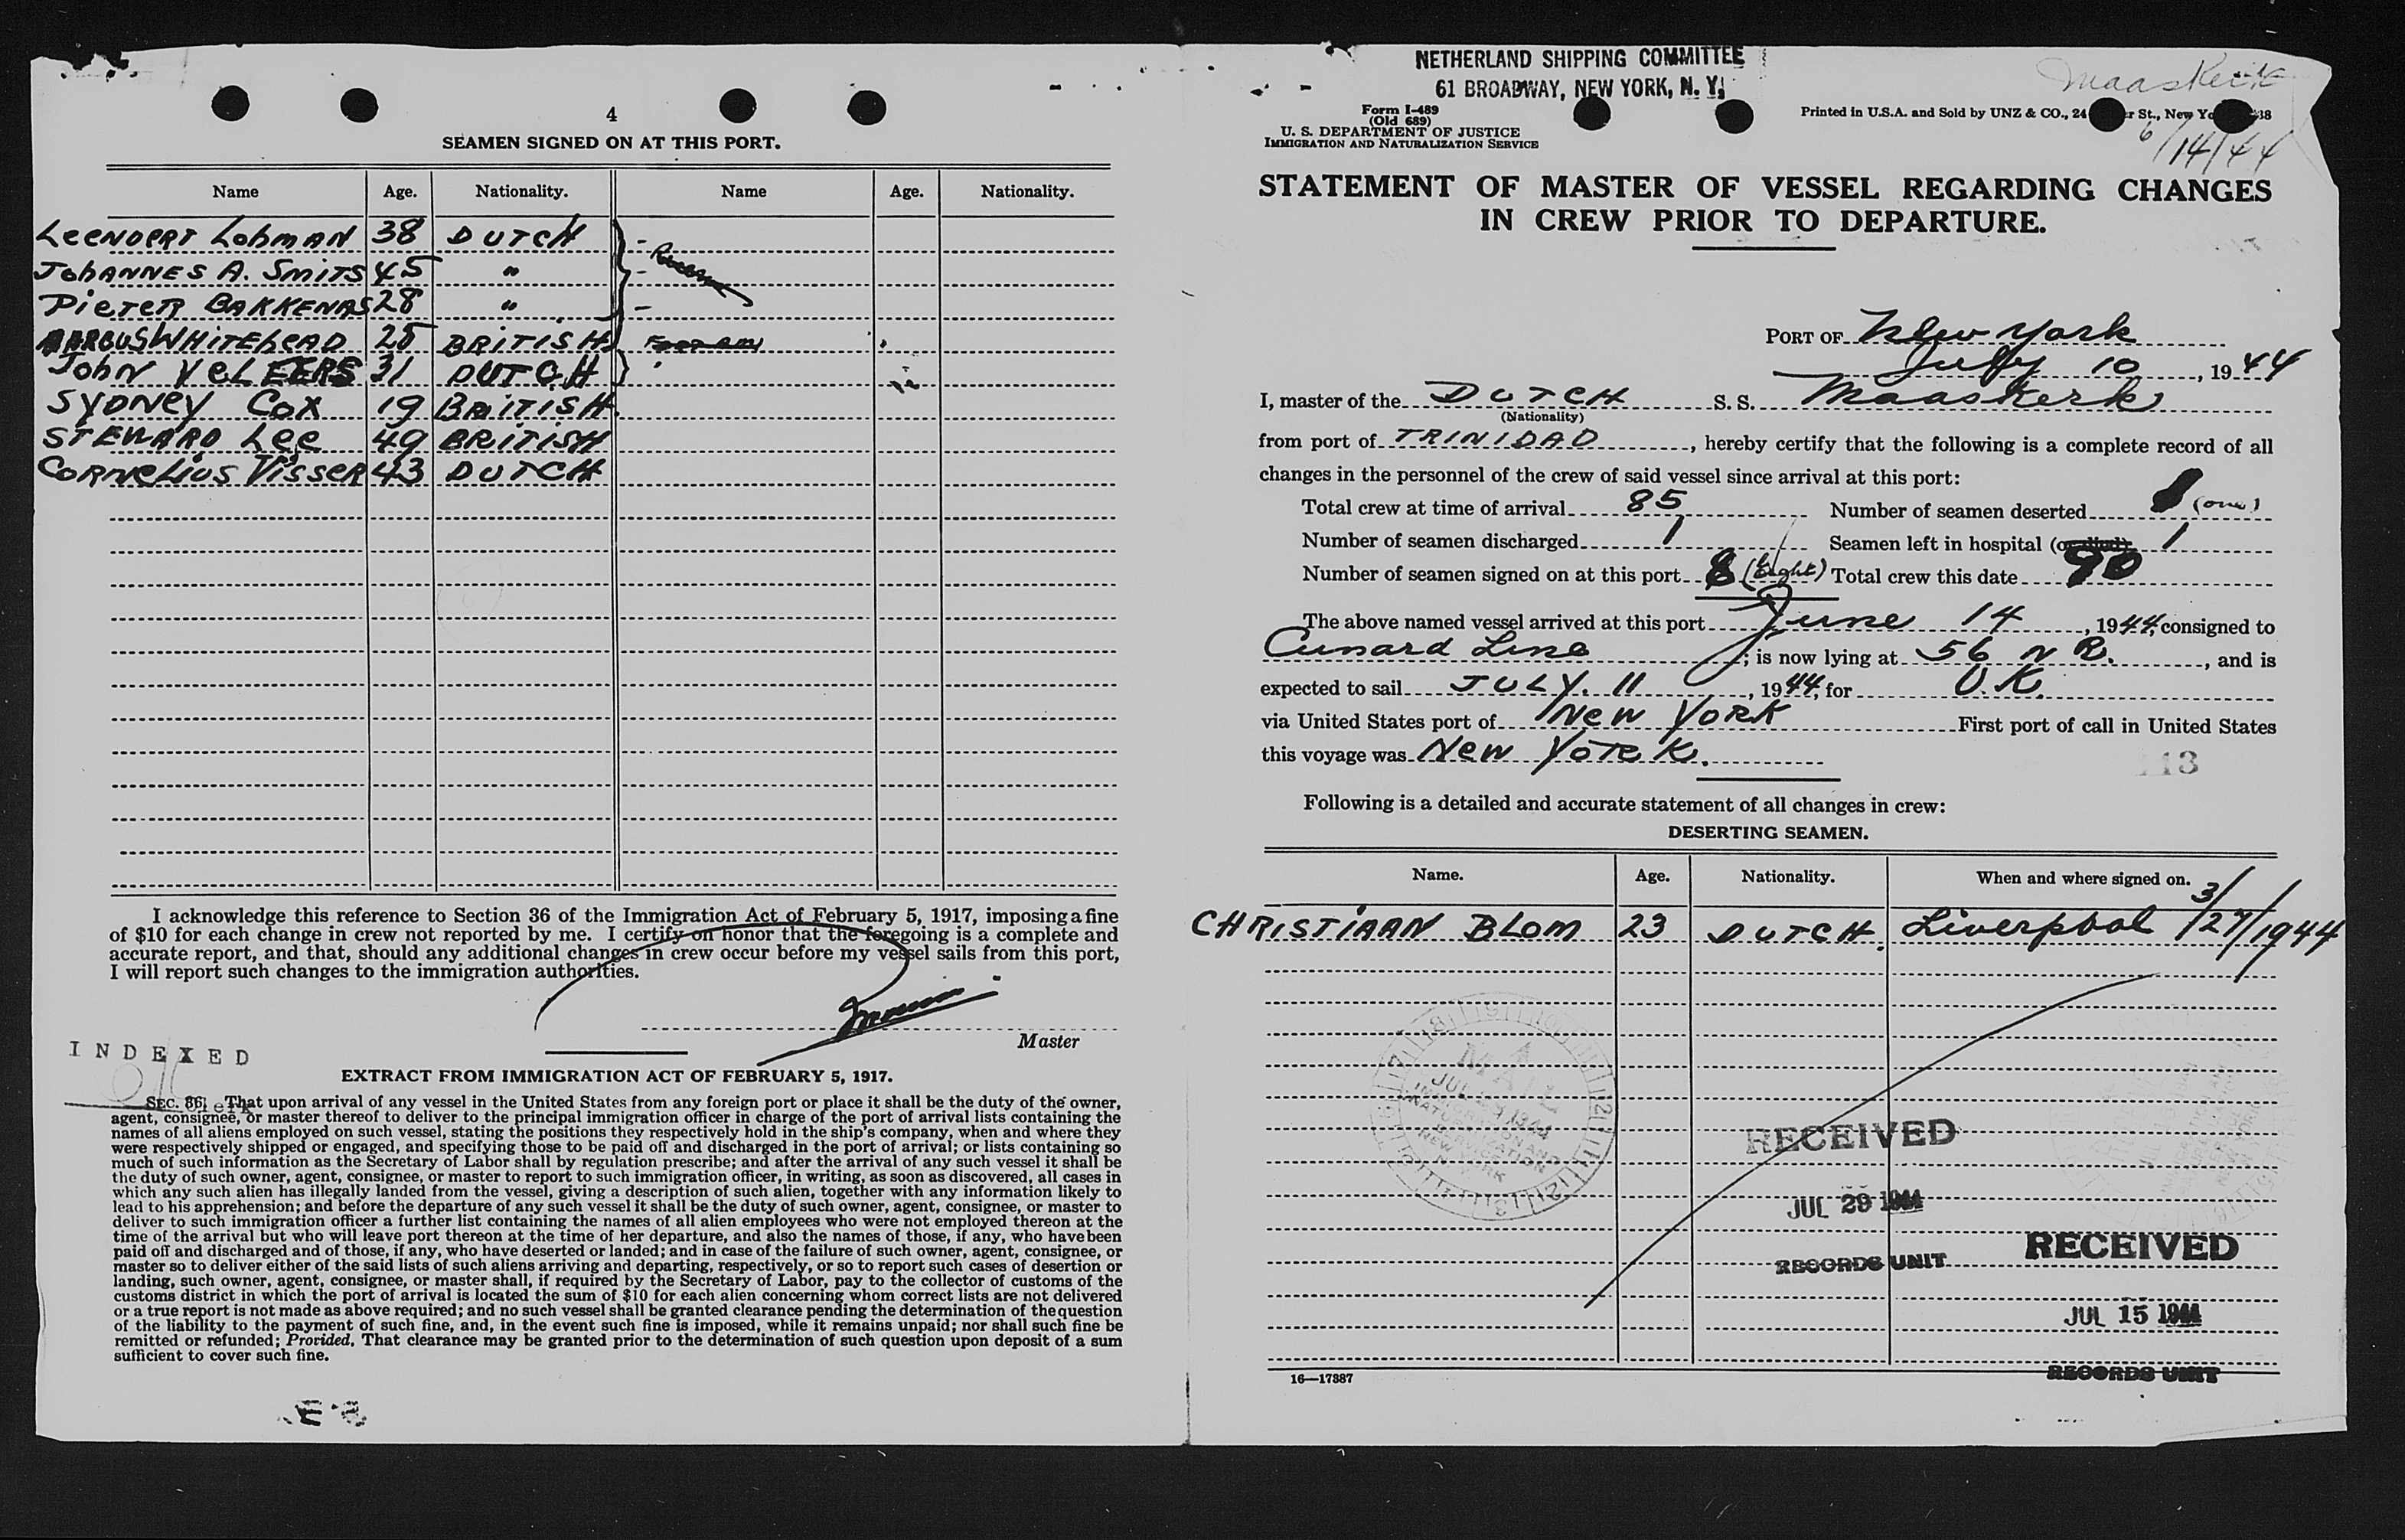 4
SEAMEN SIGNED ON AT THIS PORT.
Name Age. Nationality. Name Age. Nationality.
LEENDERT LOHMAN 38 DUTCH
JOHANNES A. SMITS 45 "
PIETER BAKKENAS 28 "
WHITEHEAD 25 BRITISH
JOHN 31 DUTCH
SYDNEY COX 19 BRITISH
STEWARD LEE 49 BRITISH
CORNELIUS VISSER 43 DUTCH
I acknowledge this reference to Section 36 of the Immigration Act of February 5, 1917, imposing a fine
of $10 for each change in crew not reported by me. I certify on honor that the foregoing is a complete and
accurate report, and that, should any additional changes in crew occur before my vessel sails from this port,
I will report such changes to the immigration authorities.
Master
INDEXED
Clerk
EXTRACT FROM IMMIGRATION ACT OF FEBRUARY 5, 1917.
SEC. 36. That upon arrival of any vessel in the United States from any foreign port or place it shall be the duty of the owner,
agent, consignee, or master thereof to deliver to the principal immigration officer in charge of the port of arrival lists containing the
names of all aliens employed on such vessel, stating the positions they respectively hold in the ship's company, when and where they
were respectively shipped or engaged, and specifying those to be paid off and discharged in the port of arrival; or lists containing so
much of such information as the Secretary of Labor shall by regulation prescribe; and after the arrival of any such vessel it shall be
the duty of such owner, agent, consignee, or master to report to such immigration officer, in writing, as soon as discovered, all cases in
which any such alien has illegally landed from the vessel, giving a description of such alien, together with any information likely to
lead to his apprehension; and before the departure of any such vessel it shall be the duty of such owner, agent, consignee, or master to
deliver to such immigration officer a further list containing the names of all alien employees who were not employed thereon at the
time of the arrival but who will leave port thereon at the time of her departure, and also the names of those, if any, who have been
paid off and discharged and of those, if any, who have deserted or landed; and in case of the failure of such owner, agent, consignee, or
master so to deliver either of the said lists of such aliens arriving and departing, respectively, or so to report such cases of desertion or
landing, such owner, agent, consignee, or master shall, if required by the Secretary of Labor, pay to the collector of customs of the
customs district in which the port of arrival is located the sum of $10 for each alien concerning whom correct lists are not delivered
or a true report is not made as above required; and no such vessel shall be granted clearance pending the determination of the question
of the liability to the payment of such fine, and, in the event such fine is imposed, while it remains unpaid; nor shall such fine be
remitted or refunded; Provided, That clearance may be granted prior to the determination of such question upon deposit of a sum
sufficient to cover such fine.
NETHERLAND SHIPPING COMMITTEE
61 BROADWAY, NEW YORK, N. Y.
Maaskerk
6/14/44
Form I-489
(Old 689)
U. S. DEPARTMENT OF JUSTICE
IMMIGRATION AND NATURALIZATION SERVICE
Printed in U.S.A. and Sold by UNZ & CO., 24 St., New
STATEMENT OF MASTER OF VESSEL REGARDING CHANGES
IN CREW PRIOR TO DEPARTURE.
PORT OF New York
July 10, 1944
I, master of the DUTCH S. S. Maaskerk
(Nationality)
from port of TRINIDAD, hereby certify that the following is a complete record of all
changes in the personnel of the crew of said vessel since arrival at this port:
Total crew at time of arrival 85 Number of seamen deserted 1 (one)
Number of seamen discharged 1 Seamen left in hospital (or died) 1
Number of seamen signed on at this port 8 (Eight) Total crew this date 90
The above named vessel arrived at this port June 14, 1944, consigned to
Cunard Line; is now lying at 56 N R., and is
expected to sail JULY. 11, 1944, for U.K.
via United States port of New York First port of call in United States
this voyage was New York.
113
Following is a detailed and accurate statement of all changes in crew:
DESERTING SEAMEN.
Name. Age. Nationality. When and where signed on.
CHRISTIAAN BLOM 23 DUTCH. Liverpool 3/27/1944
MAIL
IMMIGRATION AND
NATURALIZATION
SERVICE
NEW YORK
RECEIVED
JUL 29 1944
RECORDS UNIT
RECEIVED
JUL 15 1944
RECORDS UNIT
16—17387